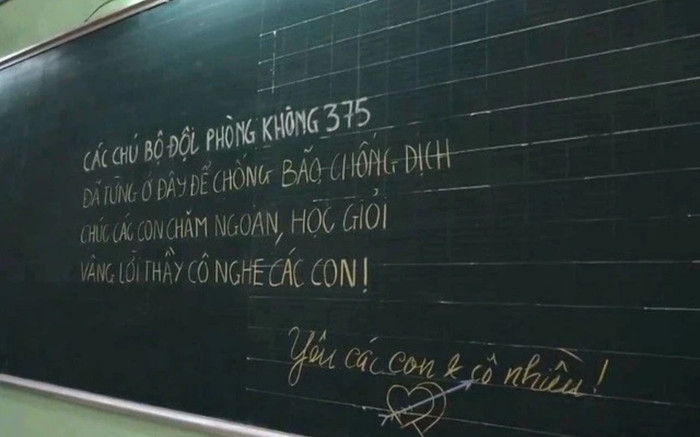 CÁC CHÚ BỘ ĐỘI PHÒNG KHÔNG 375
ĐÃ TỪNG Ở ĐÂY ĐỂ CHỐNG BÃO, CHỐNG DỊCH
CHÚC CÁC CON CHĂM NGOAN, HỌC GIỎI
VÂNG LỜI THẦY CÔ NGHE CÁC CON!
Yêu các con & cô nhiều!